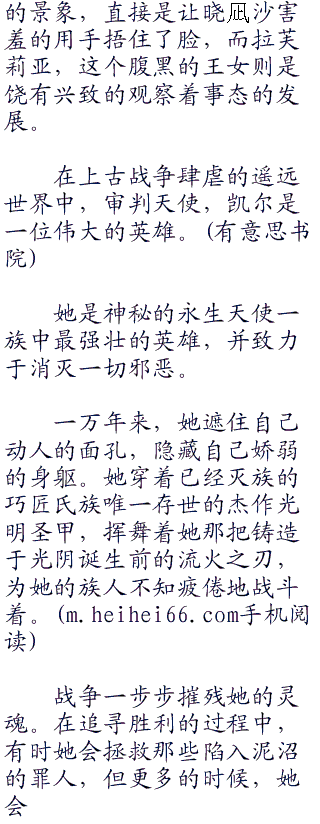 的景象，直接是让晓凪沙害
羞的用手捂住了脸，而拉芙
莉亚，这个腹黑的王女则是
饶有兴致的观察着事态的发
展。
在上古战争肆虐的遥远
世界中，审判天使，凯尔是
一位伟大的英雄。(有意思书
院)
她是神秘的永生天使一
族中最强壮的英雄，并致力
于消灭一切邪恶。
一万年来，她遮住自己
动人的面孔，隐藏自己娇弱
的身躯。她穿着已经灭族的
巧匠氏族唯一存世的杰作光
明圣甲，挥舞着她那把铸造
于光阴诞生前的流火之刃，
为她的族人不知疲倦地战斗
着。(m.heihei66.com手机阅
读)
战争一步步摧残她的灵
魂。在追寻胜利的过程中，
有时她会拯救那些陷入泥沼
的罪人，但更多的时候，她
会